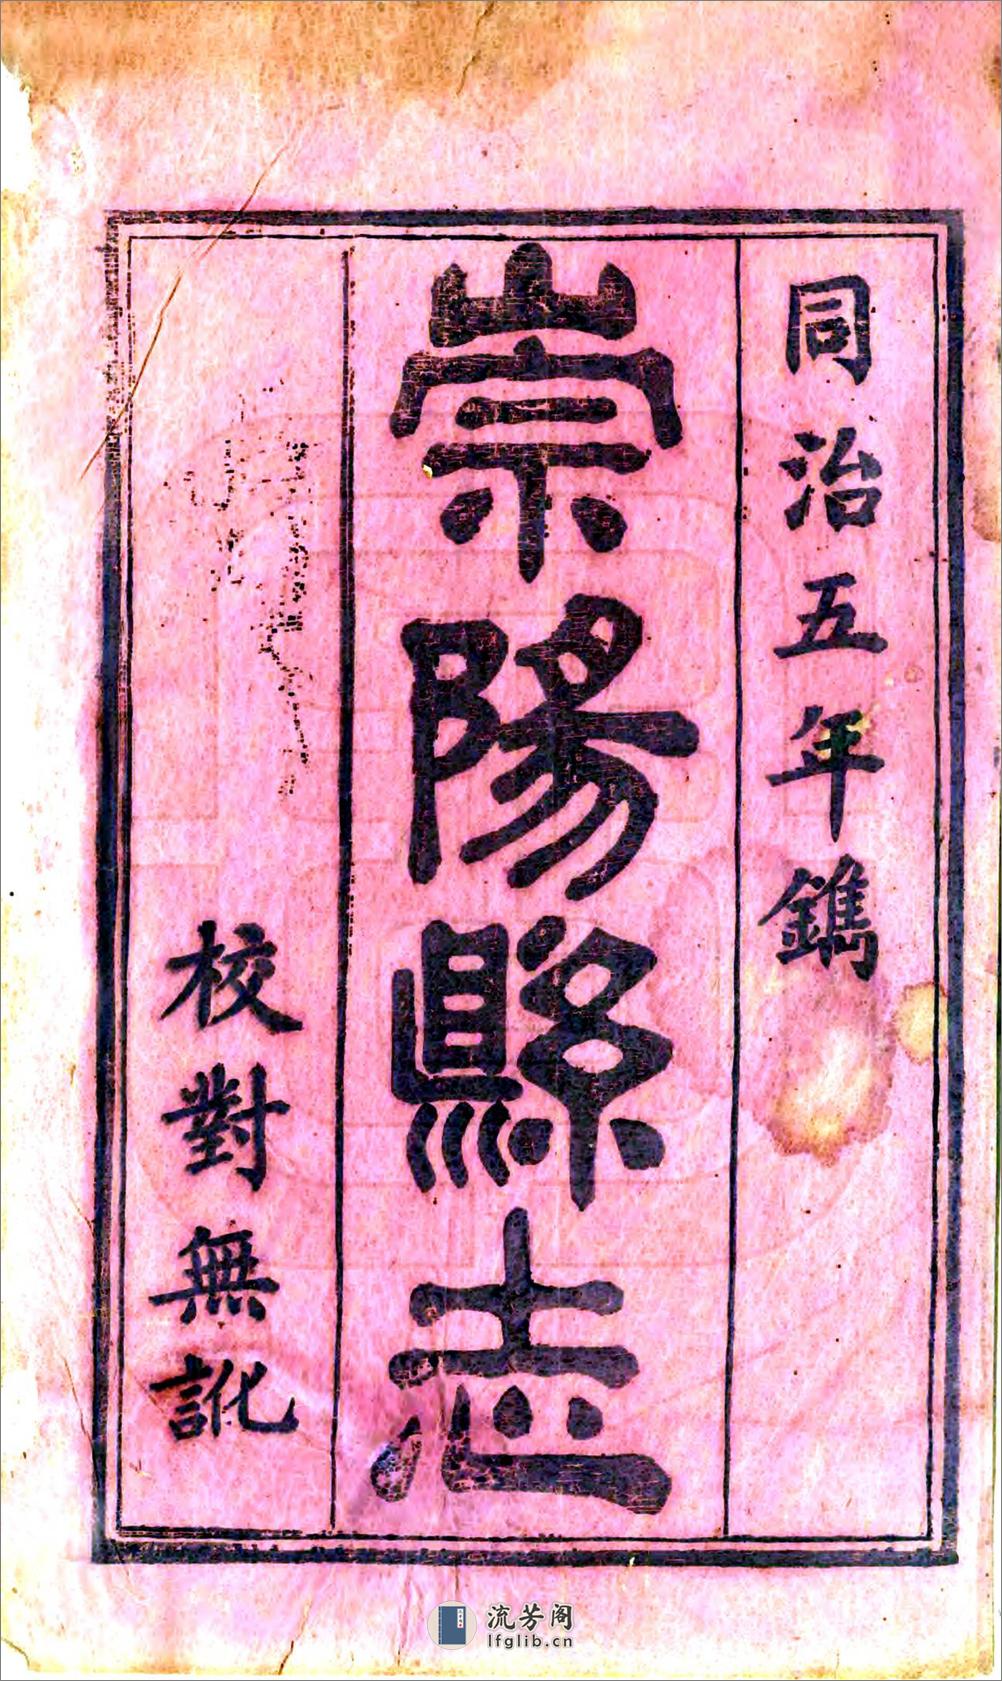 同治五年鐫
崇陽縣志
校對無訛
流芳阁
lfglib.cn